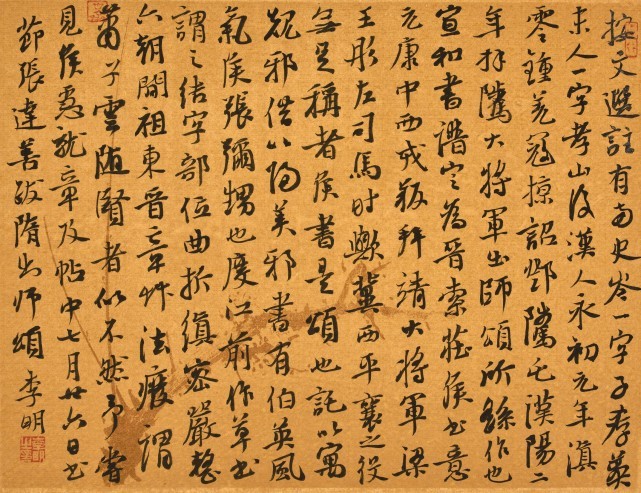 按文選註有两史岑一字子孝莽
末人一字孝山後漢人永初元年滇
零鍾羌寇掠詔鄧騭屯漢陽二
年拜騭大將軍出師頌所繇作也
宣和書譜定為晉索靖侯書意
元康中西戎叛拜靖大將軍梁
王肜左司馬时歟西平襄之役
無足稱者侯書是頌也託以寓
規邪借以歸美邪書有伯英風
氣侯張彌甥也度江前作草書
謂之結字部位曲折縝密嚴整
六朝間祖東晉章艸法癈謂
蕭子雲隋賢者似不然予嘗
見侯急就章及帖中七月廿六日書
節張達善跋隋出師頌 李明